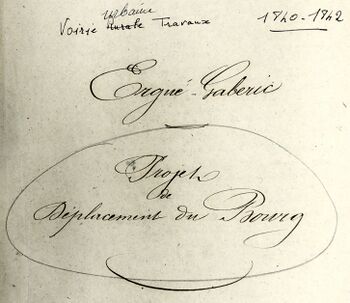 urbaine
Voirie rurale Travaux
1840-1842
Ergué-Gaberic
Projet
de
Déplacement du Bourg